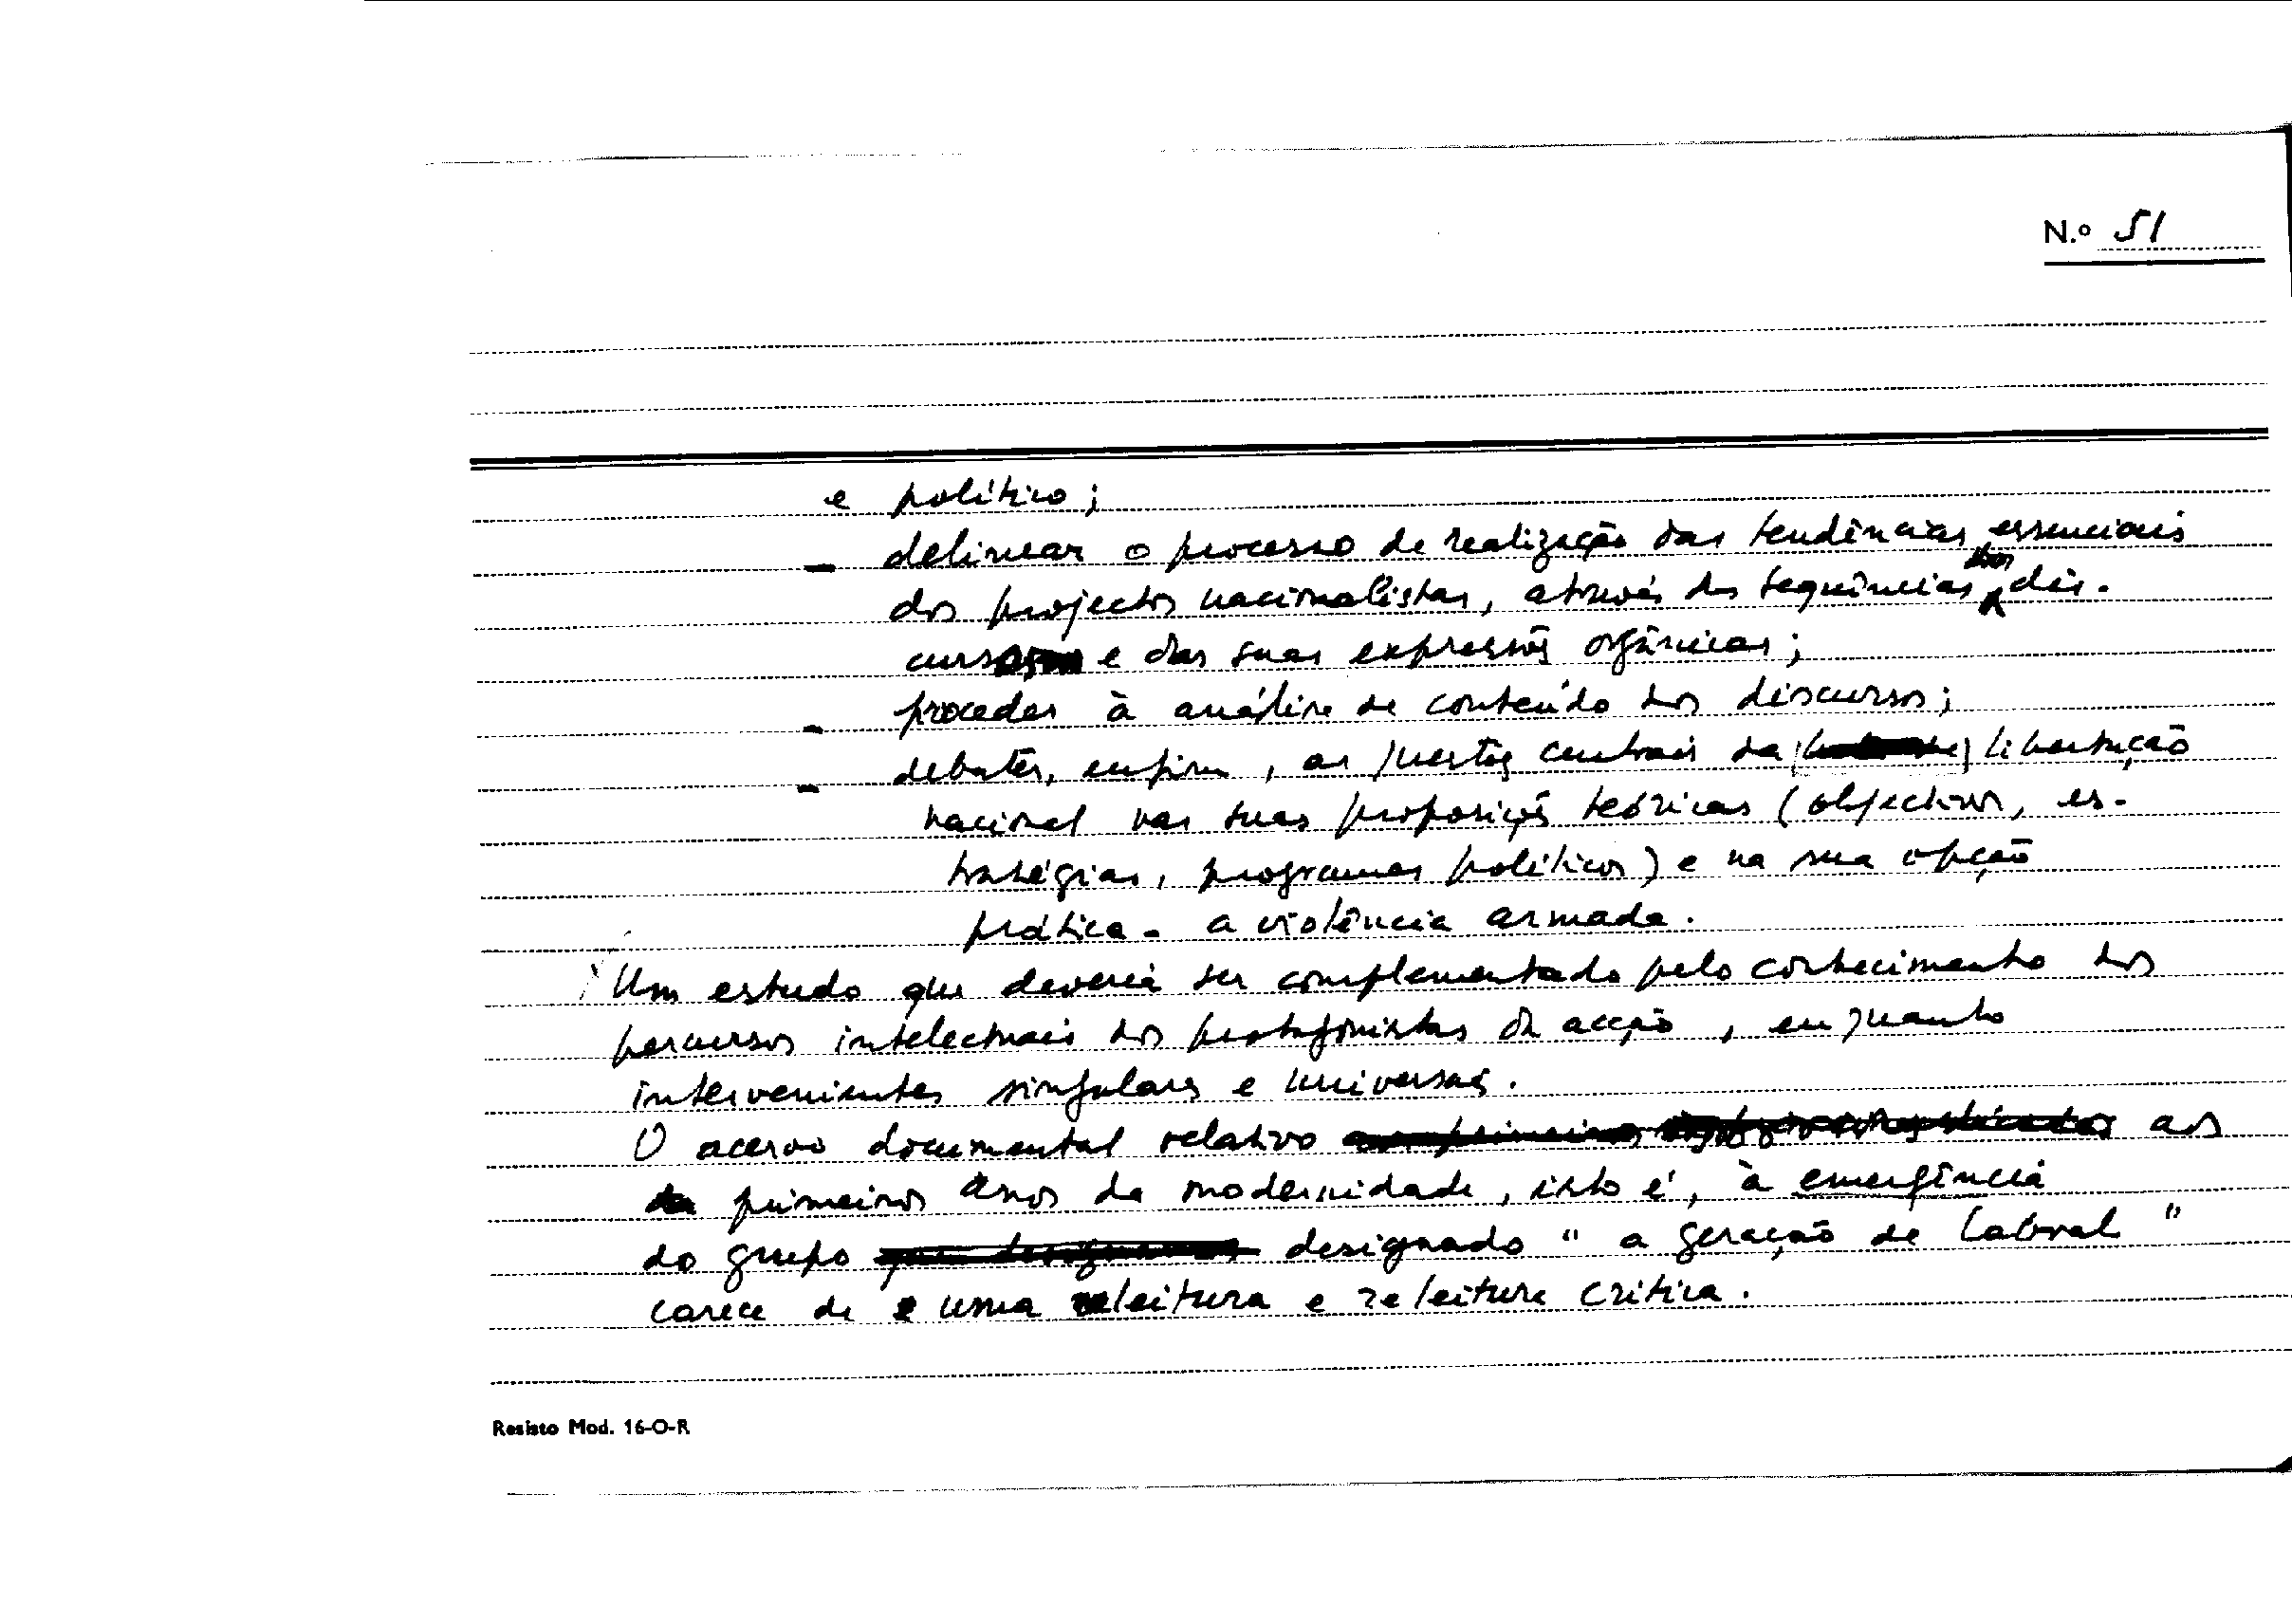 N.º 51
e político;
- delinear o processo de realização das tendências essenciais
dos projectos nacionalistas, através das sequências dos dis-
cursos e das suas expressões orgânicas;
- proceder à análise de conteúdo dos discursos;
- debater, enfim, as questões centrais da libertação
nacional nas suas proposições teóricas (objectivos, es-
tratégias, programas políticos) e na sua opção
prática - a violência armada.
Um estudo que deveria ser complementado pelo conhecimento dos
percursos intelectuais dos protagonistas da acção, enquanto
intervenientes singulares e universais.
O acervo documental relativo aos
primeiros anos da modernidade, isto é, à emergência
do grupo designado "a geração de Cabral"
carece de uma leitura e releitura crítica.
Resisto Mod. 16-O-R